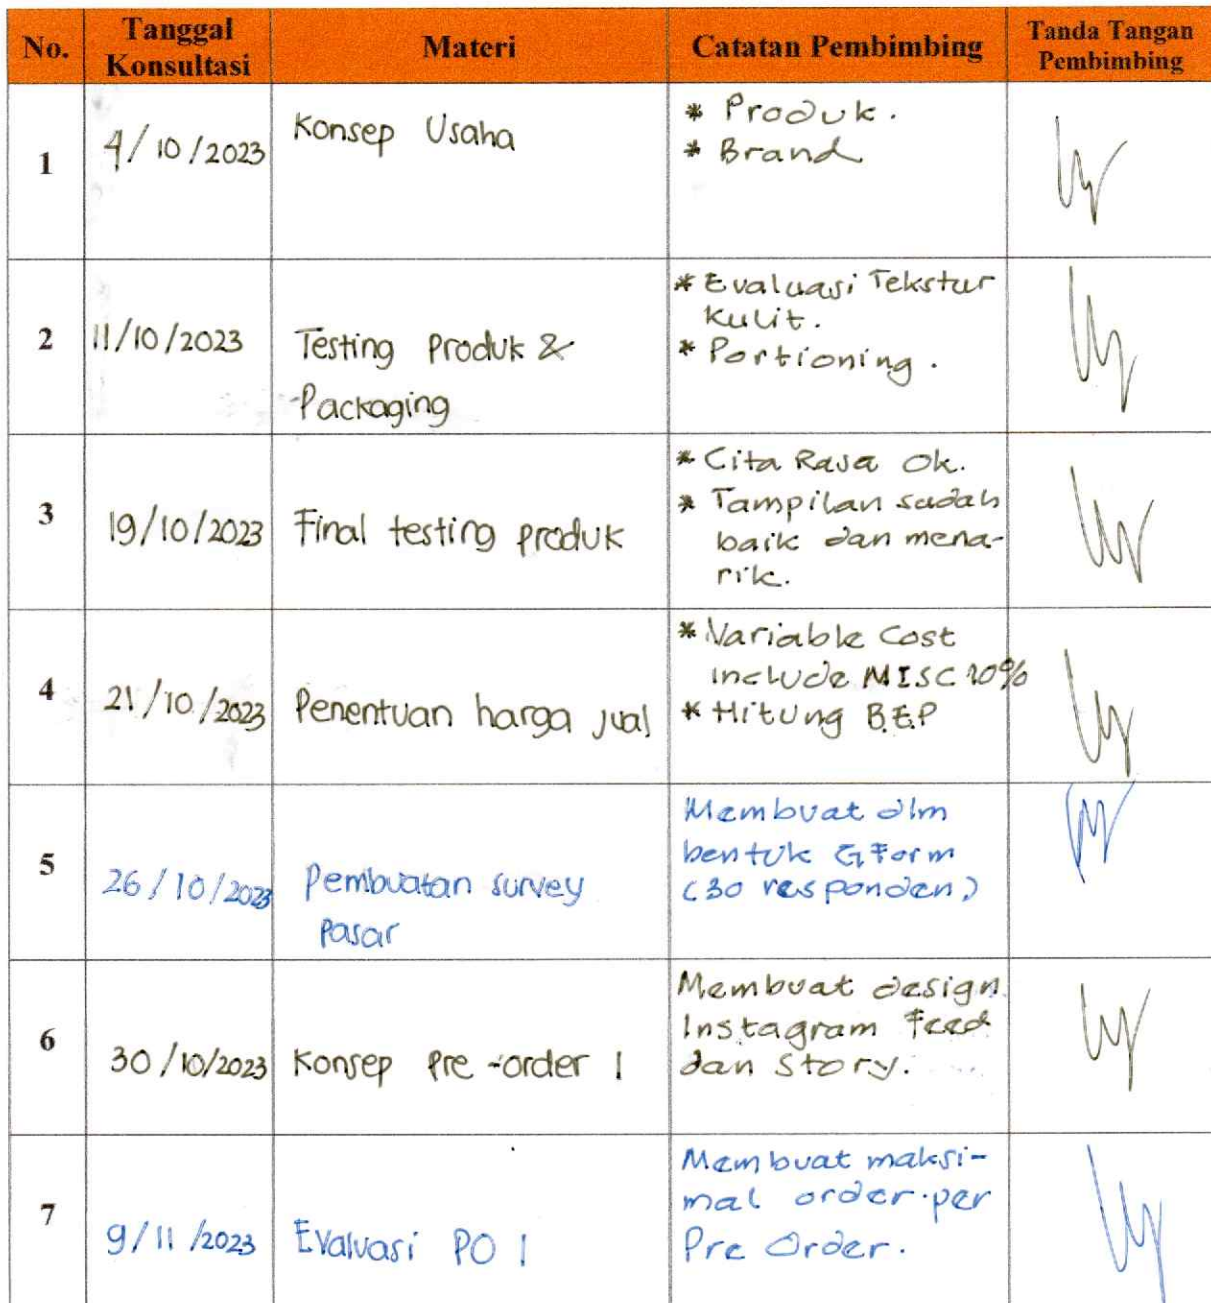 No.
Tanggal
Konsultasi
Materi
Catatan Pembimbing
Tanda Tangan
Pembimbing
1
4/10/2023
Konsep Usaha
* Produk.
* Brand
2
11/10/2023
Testing produk &
Packaging
* Evaluasi Tekstur
Kulit.
* Portioning.
3
19/10/2023
Final testing produk
* Cita Rasa Ok.
* Tampilan sudah
baik dan mena-
rik.
4
21/10/2023
Penentuan harga jual
* Variable Cost
include MISC 10%
* Hitung B.E.P
5
26/10/2023
Pembuatan survey
pasar
Membuat dlm
bentuk GForm
(30 responden)
6
30/10/2023
Konsep Pre-order 1
Membuat design
Instagram Feed
dan Story.
7
9/11/2023
Evaluasi PO 1
Membuat maksi-
mal order per
Pre Order.